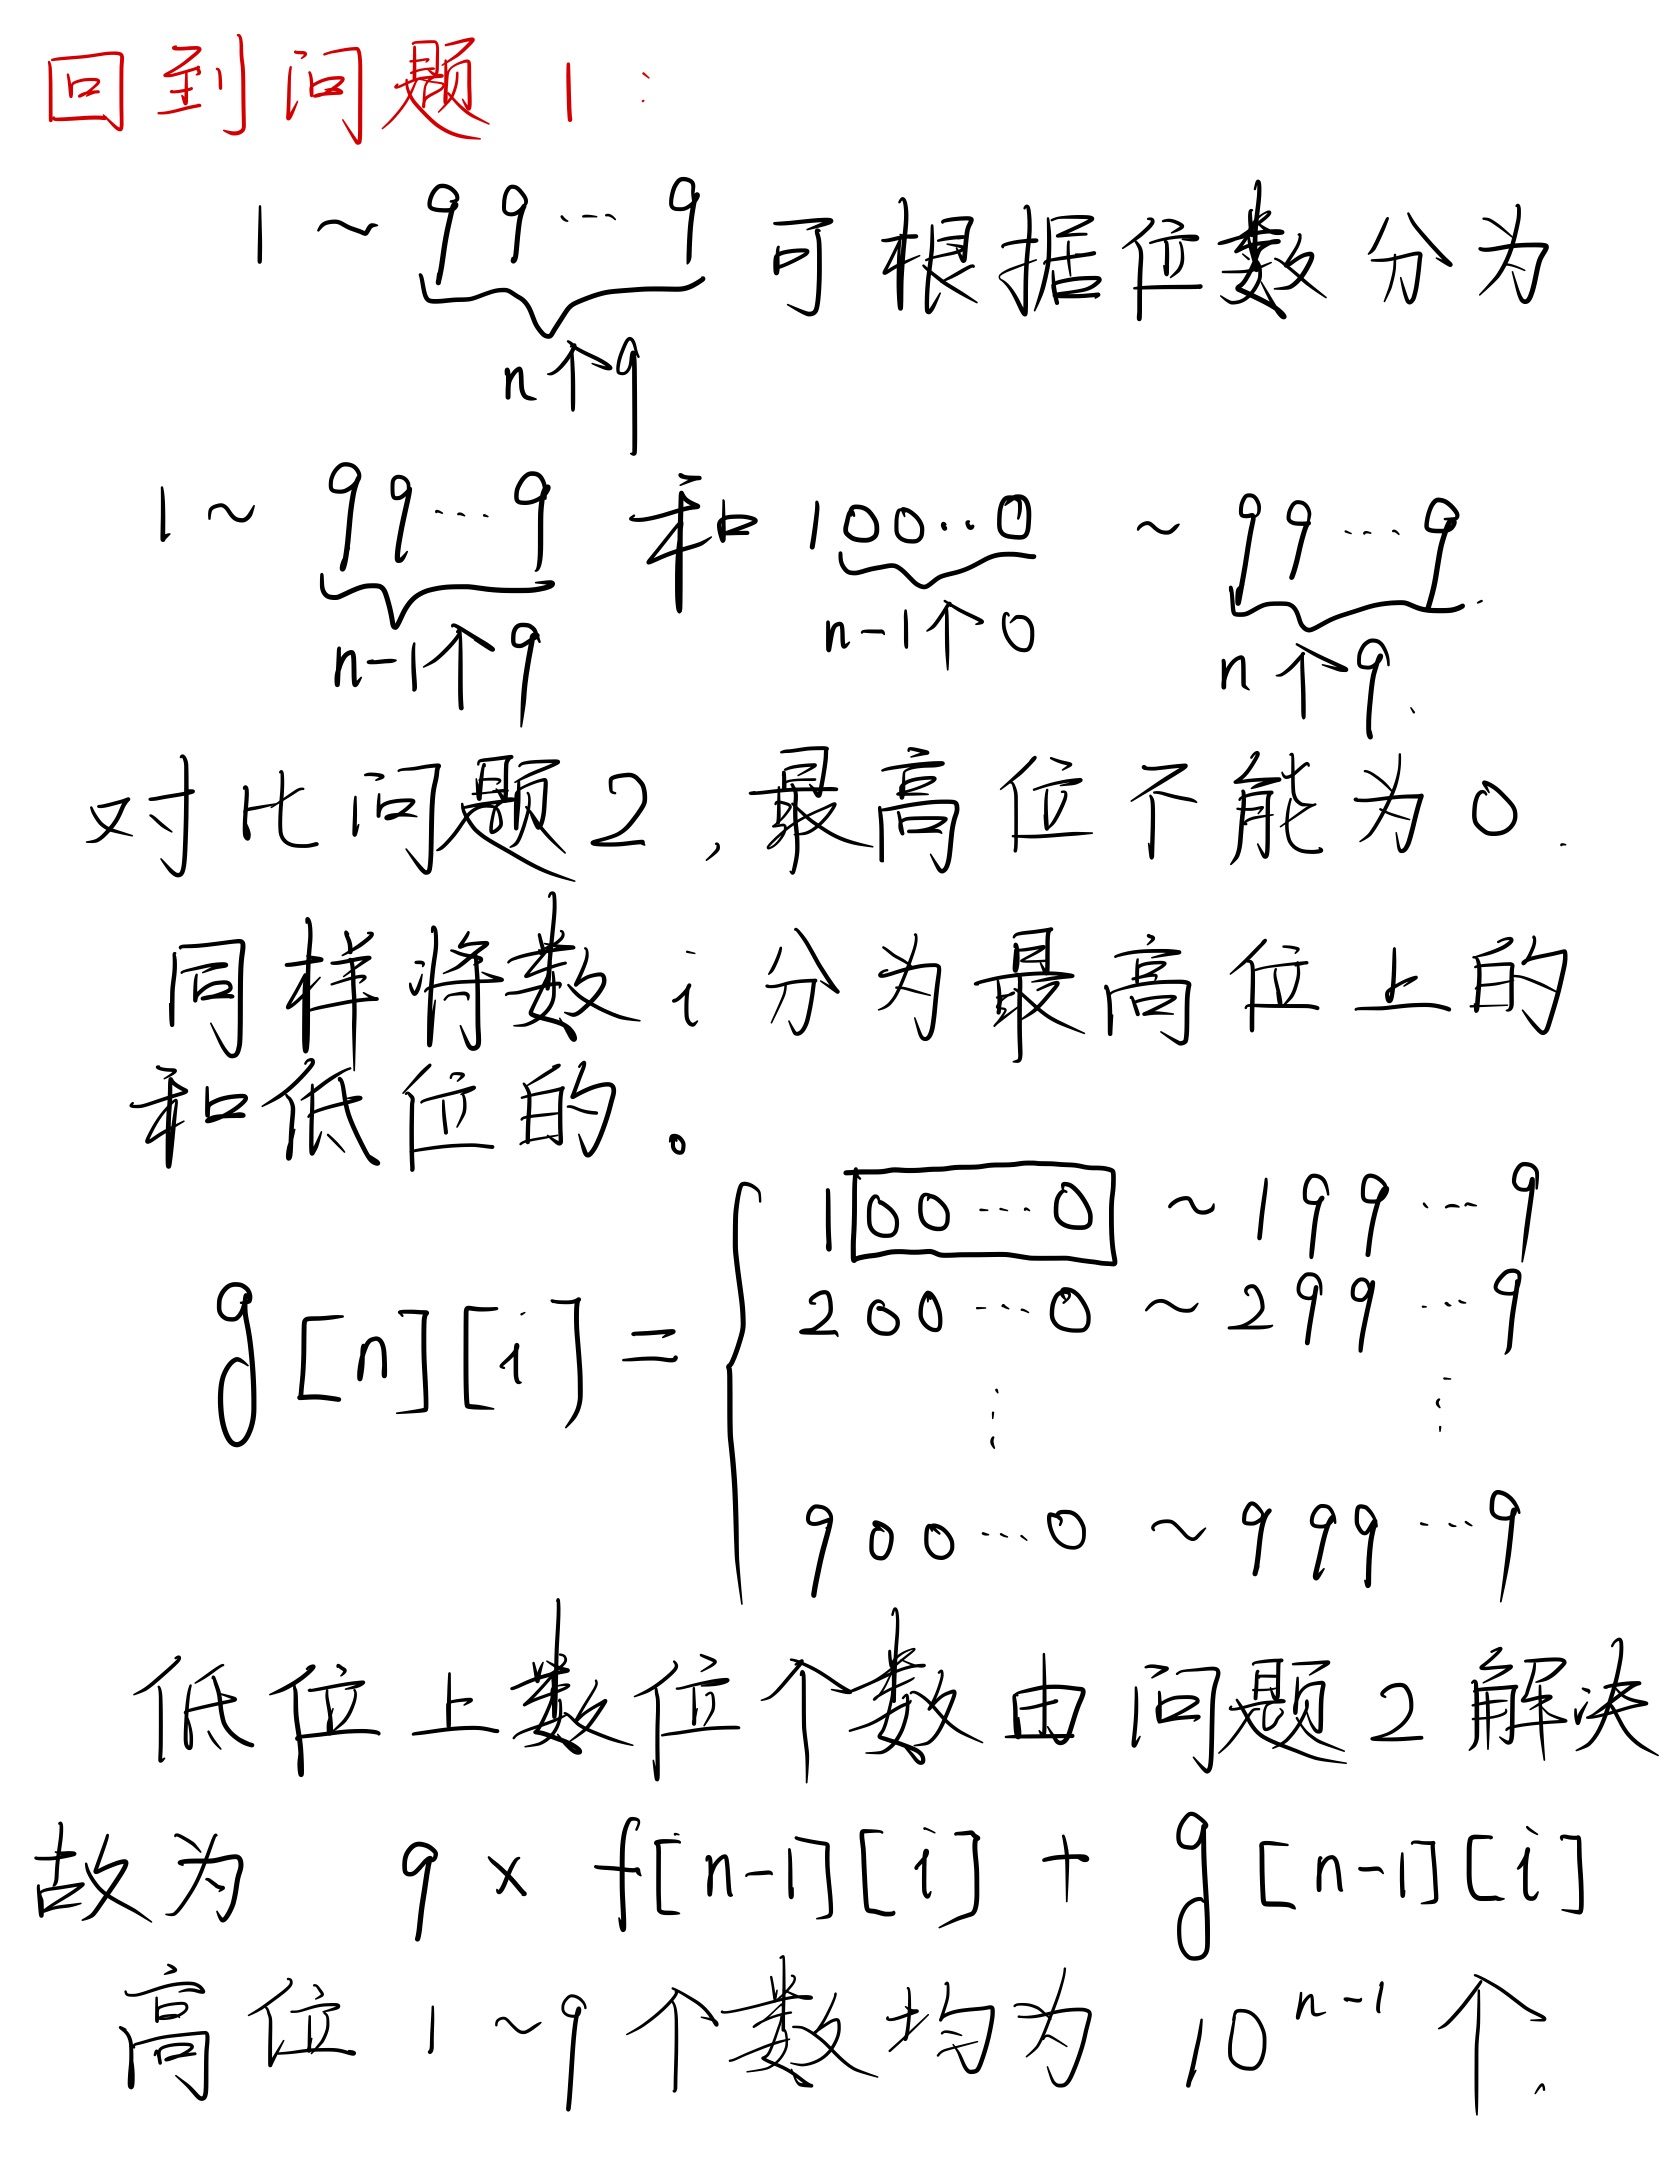 回到问题 1:
1 ~ 99…9 可根据位数分为
n个9
1 ~ 99…9 和 100…0 ~ 99…9.
n-1个9 n-1个0 n个9.
对比问题2,最高位不能为0.
同样将数i分为最高位上的
和低位的。
100…0 ~ 199…9
200…0 ~ 299…9
g[n][i] =
⋮ ⋮
900…0 ~ 999…9
低位上数位个数由问题2解决
故为 9 × f[n-1][i] + g[n-1][i]
高位 1~9个数均为 10^{n-1}个.